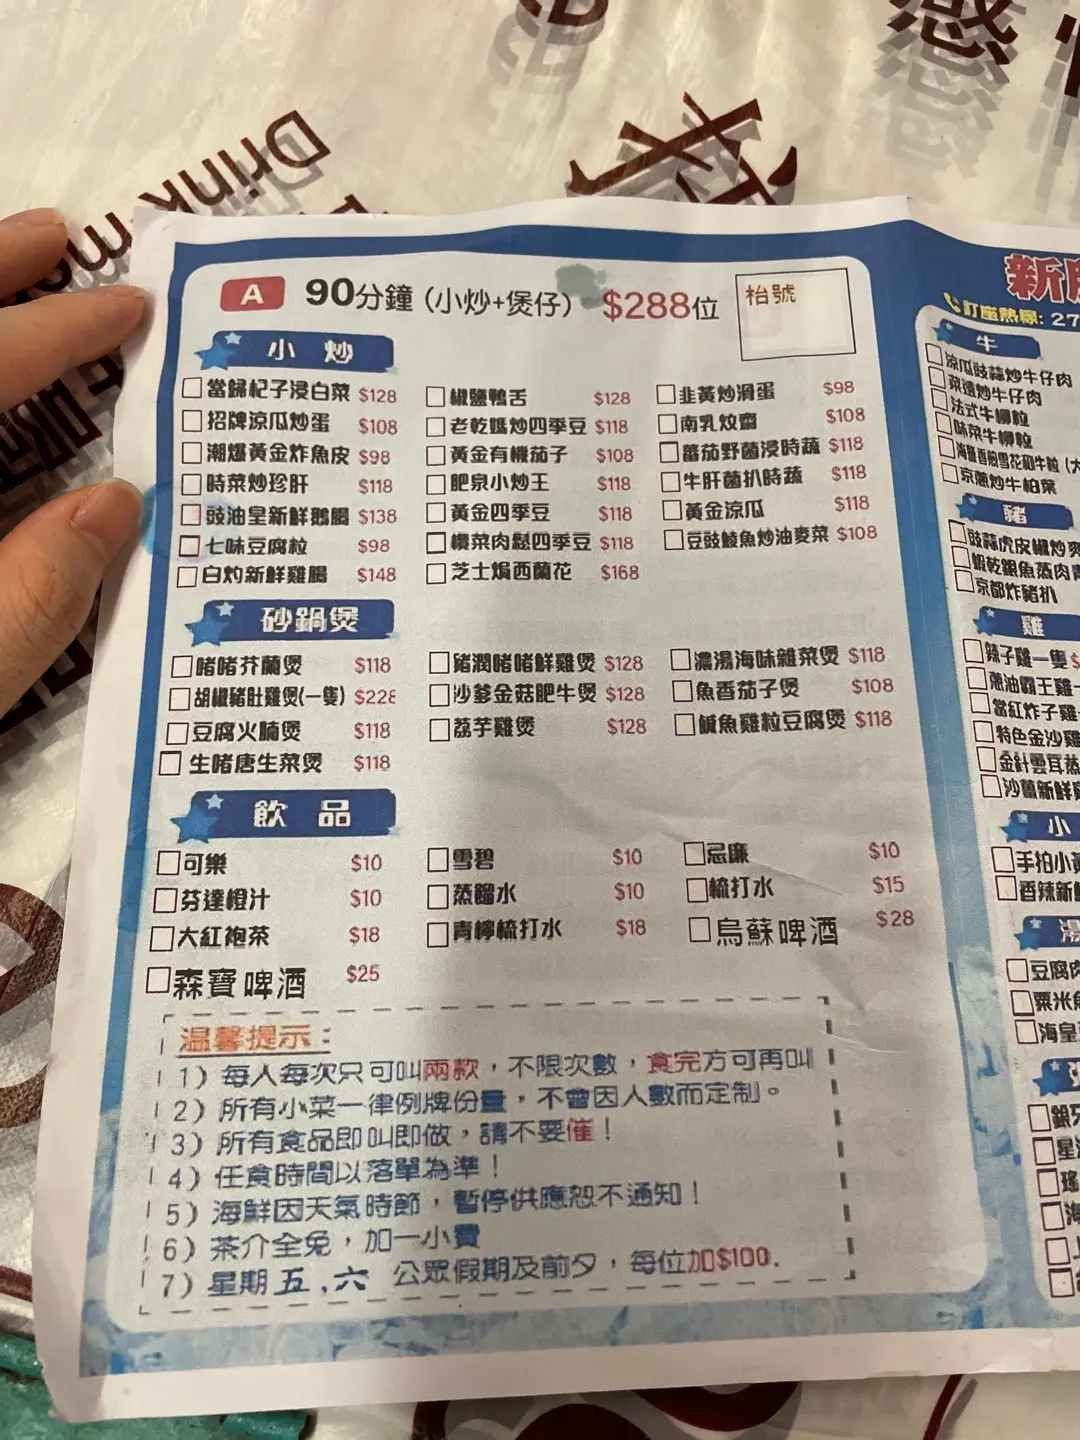 Drink
A 90分鐘（小炒+煲仔） $288位
枱號
小 炒
當歸杞子浸白菜 $128
椒鹽鴨舌 $128
韭黃炒滑蛋 $98
招牌涼瓜炒蛋 $108
老乾媽炒四季豆 $118
南乳炆齋 $108
潮爆黃金炸魚皮 $98
黃金有機茄子 $108
蕃茄野菌浸時蔬 $118
時菜炒珍肝 $118
肥泉小炒王 $118
牛肝菌扒時蔬 $118
豉油皇新鮮鵝腸 $138
黃金四季豆 $118
黃金涼瓜 $118
七味豆腐粒 $98
欖菜肉鬆四季豆 $118
豆豉鯪魚炒油麥菜 $108
白灼新鮮雞腸 $148
芝士焗西蘭花 $168
砂鍋煲
啫啫芥蘭煲 $118
豬潤啫啫鮮雞煲 $128
濃湯海味雜菜煲 $118
胡椒豬肚雞煲(一隻) $228
沙爹金菇肥牛煲 $128
魚香茄子煲 $108
豆腐火腩煲 $118
荔芋雞煲 $128
鹹魚雞粒豆腐煲 $118
生啫唐生菜煲 $118
飲 品
可樂 $10
雪碧 $10
忌廉 $10
芬達橙汁 $10
蒸餾水 $10
梳打水 $15
大紅袍茶 $18
青檸梳打水 $18
烏蘇啤酒 $28
森寶啤酒 $25
溫馨提示：
1）每人每次只可叫兩款，不限次數，食完方可再叫
2）所有小菜一律例牌份量，不會因人數而定制。
3）所有食品即叫即做，請不要催！
4）任食時間以落單為準！
5）海鮮因天氣時節，暫停供應恕不通知！
6）茶介全免，加一小費
7）星期五,六 公眾假期及前夕，每位加$100.
新
訂座熱線: 27
牛
涼瓜豉蒜炒牛仔肉
菜遠炒牛仔肉
法式牛柳粒
味菜牛柳粒
京蔥炒牛柏葉
豬
豉蒜虎皮椒炒爽
蝦乾銀魚蒸肉
京都炸豬扒
雞
辣子雞一隻$
蔥油霸王雞一
當紅炸子雞
特色金沙雞
金針雲耳蒸
沙薑新鮮
小
手拍小黃
香辣新鮮
湯
豆腐肉
粟米魚
海皇
銀牙
星
瑤
海
上